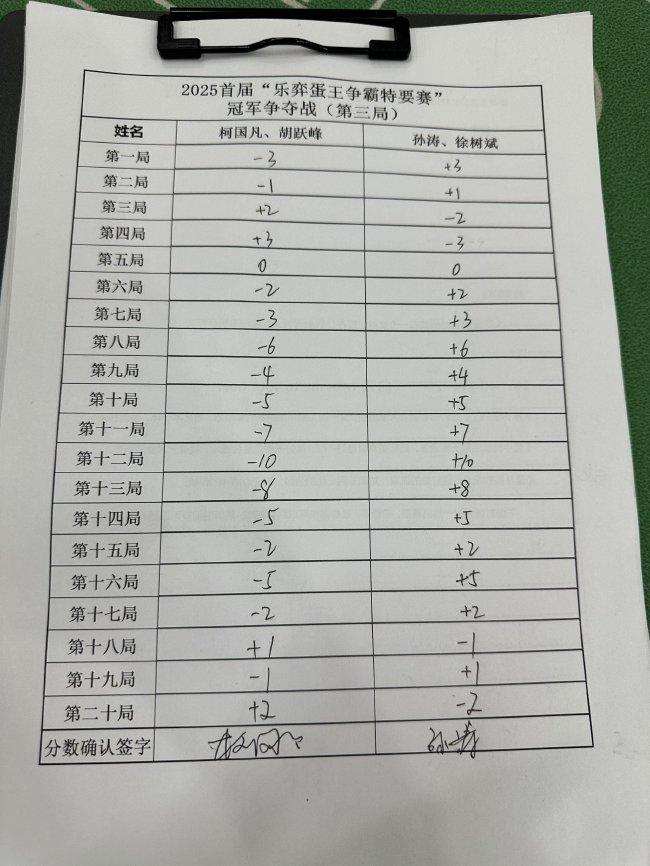 2025首届“乐弈蛋王争霸特要赛”
冠军争夺战（第三局）
姓名 柯国凡、胡跃峰 孙涛、徐树斌
第一局 -3 +3
第二局 -1 +1
第三局 +2 -2
第四局 +3 -3
第五局 0 0
第六局 -2 +2
第七局 -3 +3
第八局 -6 +6
第九局 -4 +4
第十局 -5 +5
第十一局 -7 +7
第十二局 -10 +10
第十三局 -8 +8
第十四局 -5 +5
第十五局 -2 +2
第十六局 -5 +5
第十七局 -2 +2
第十八局 +1 -1
第十九局 -1 +1
第二十局 +2 -2
分数确认签字 孙涛